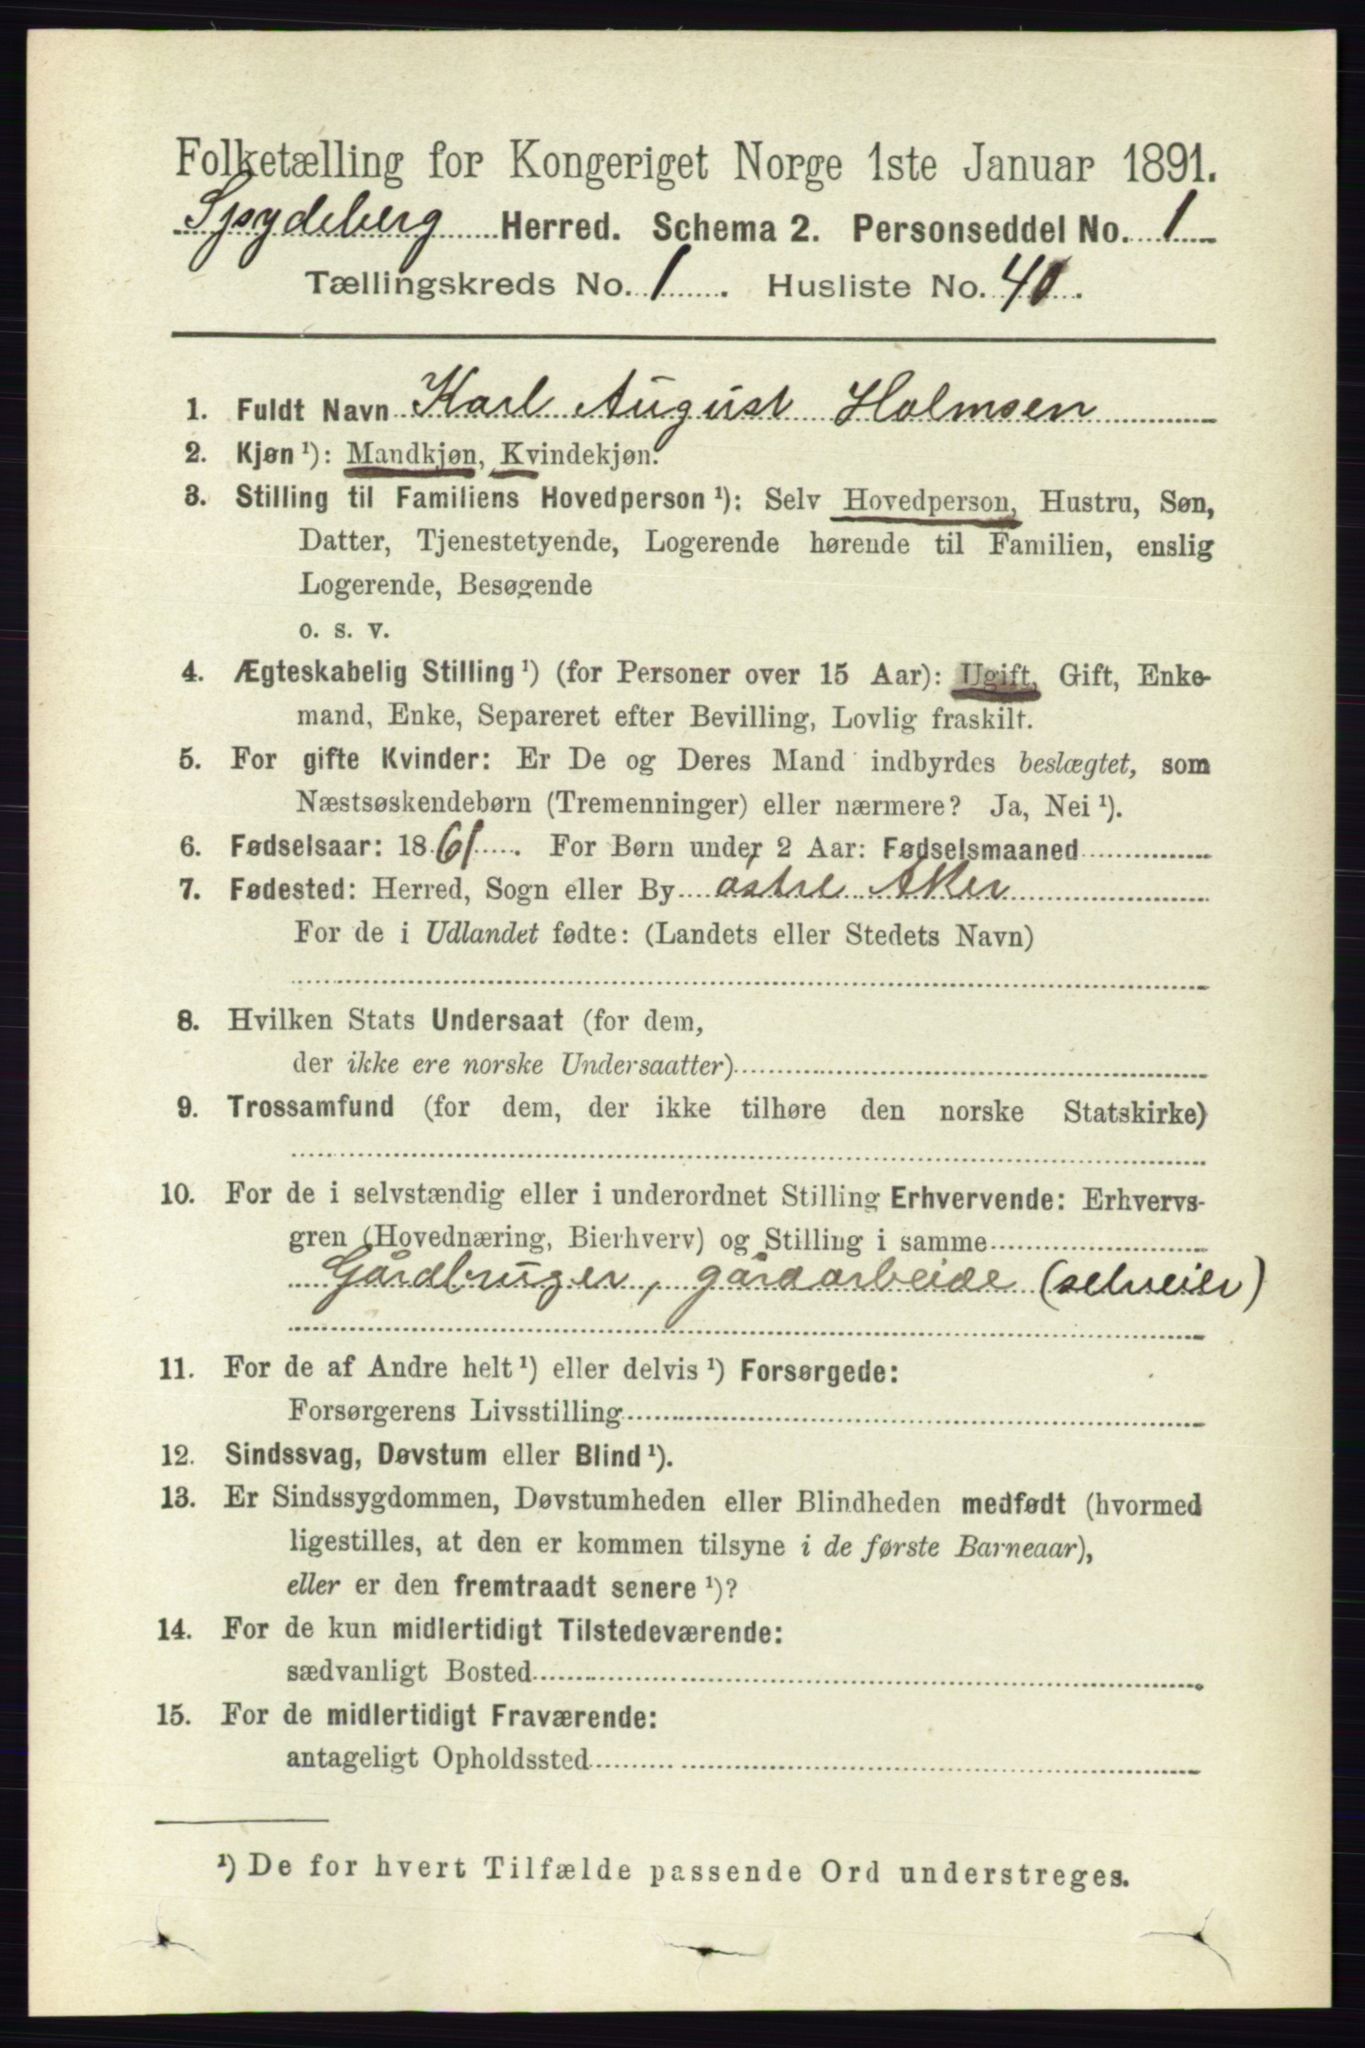 Folketælling for Kongeriget Norge 1ste Januar 1891.
Spydeberg Herred. Schema 2. Personseddel No. 1
Tællingskreds No. 1. Husliste No. 40.
1. Fuldt Navn Karl August Holmsen
2. Kjøn ¹): Mandkjøn, Kvindekjøn.
3. Stilling til Familiens Hovedperson ¹): Selv Hovedperson, Hustru, Søn,
Datter, Tjenestetyende, Logerende hørende til Familien, enslig
Logerende, Besøgende
o. s. v.
4. Ægteskabelig Stilling ¹) (for Personer over 15 Aar): Ugift, Gift, Enke-
mand, Enke, Separeret efter Bevilling, Lovlig fraskilt.
5. For gifte Kvinder: Er De og Deres Mand indbyrdes beslægtet, som
Næstsøskendebørn (Tremenninger) eller nærmere? Ja, Nei ¹).
6. Fødselsaar: 1861. For Børn under 2 Aar: Fødselsmaaned
7. Fødested: Herred, Sogn eller By østre Aker
For de i Udlandet fødte: (Landets eller Stedets Navn)
8. Hvilken Stats Undersaat (for dem,
der ikke ere norske Undersaatter)
9. Trossamfund (for dem, der ikke tilhøre den norske Statskirke)
10. For de i selvstændig eller i underordnet Stilling Erhvervende: Erhvervs-
gren (Hovednæring, Bierhverv) og Stilling i samme
Gårdbruger, gårdarbeide (selveier)
11. For de af Andre helt ¹) eller delvis ¹) Forsørgede:
Forsørgerens Livsstilling
12. Sindssvag, Døvstum eller Blind ¹).
13. Er Sindssygdommen, Døvstumheden eller Blindheden medfødt (hvormed
ligestilles, at den er kommen tilsyne i de første Barneaar),
eller er den fremtraadt senere ¹)?
14. For de kun midlertidigt Tilstedeværende:
sædvanligt Bosted
15. For de midlertidigt Fraværende:
antageligt Opholdssted
¹) De for hvert Tilfælde passende Ord understreges.